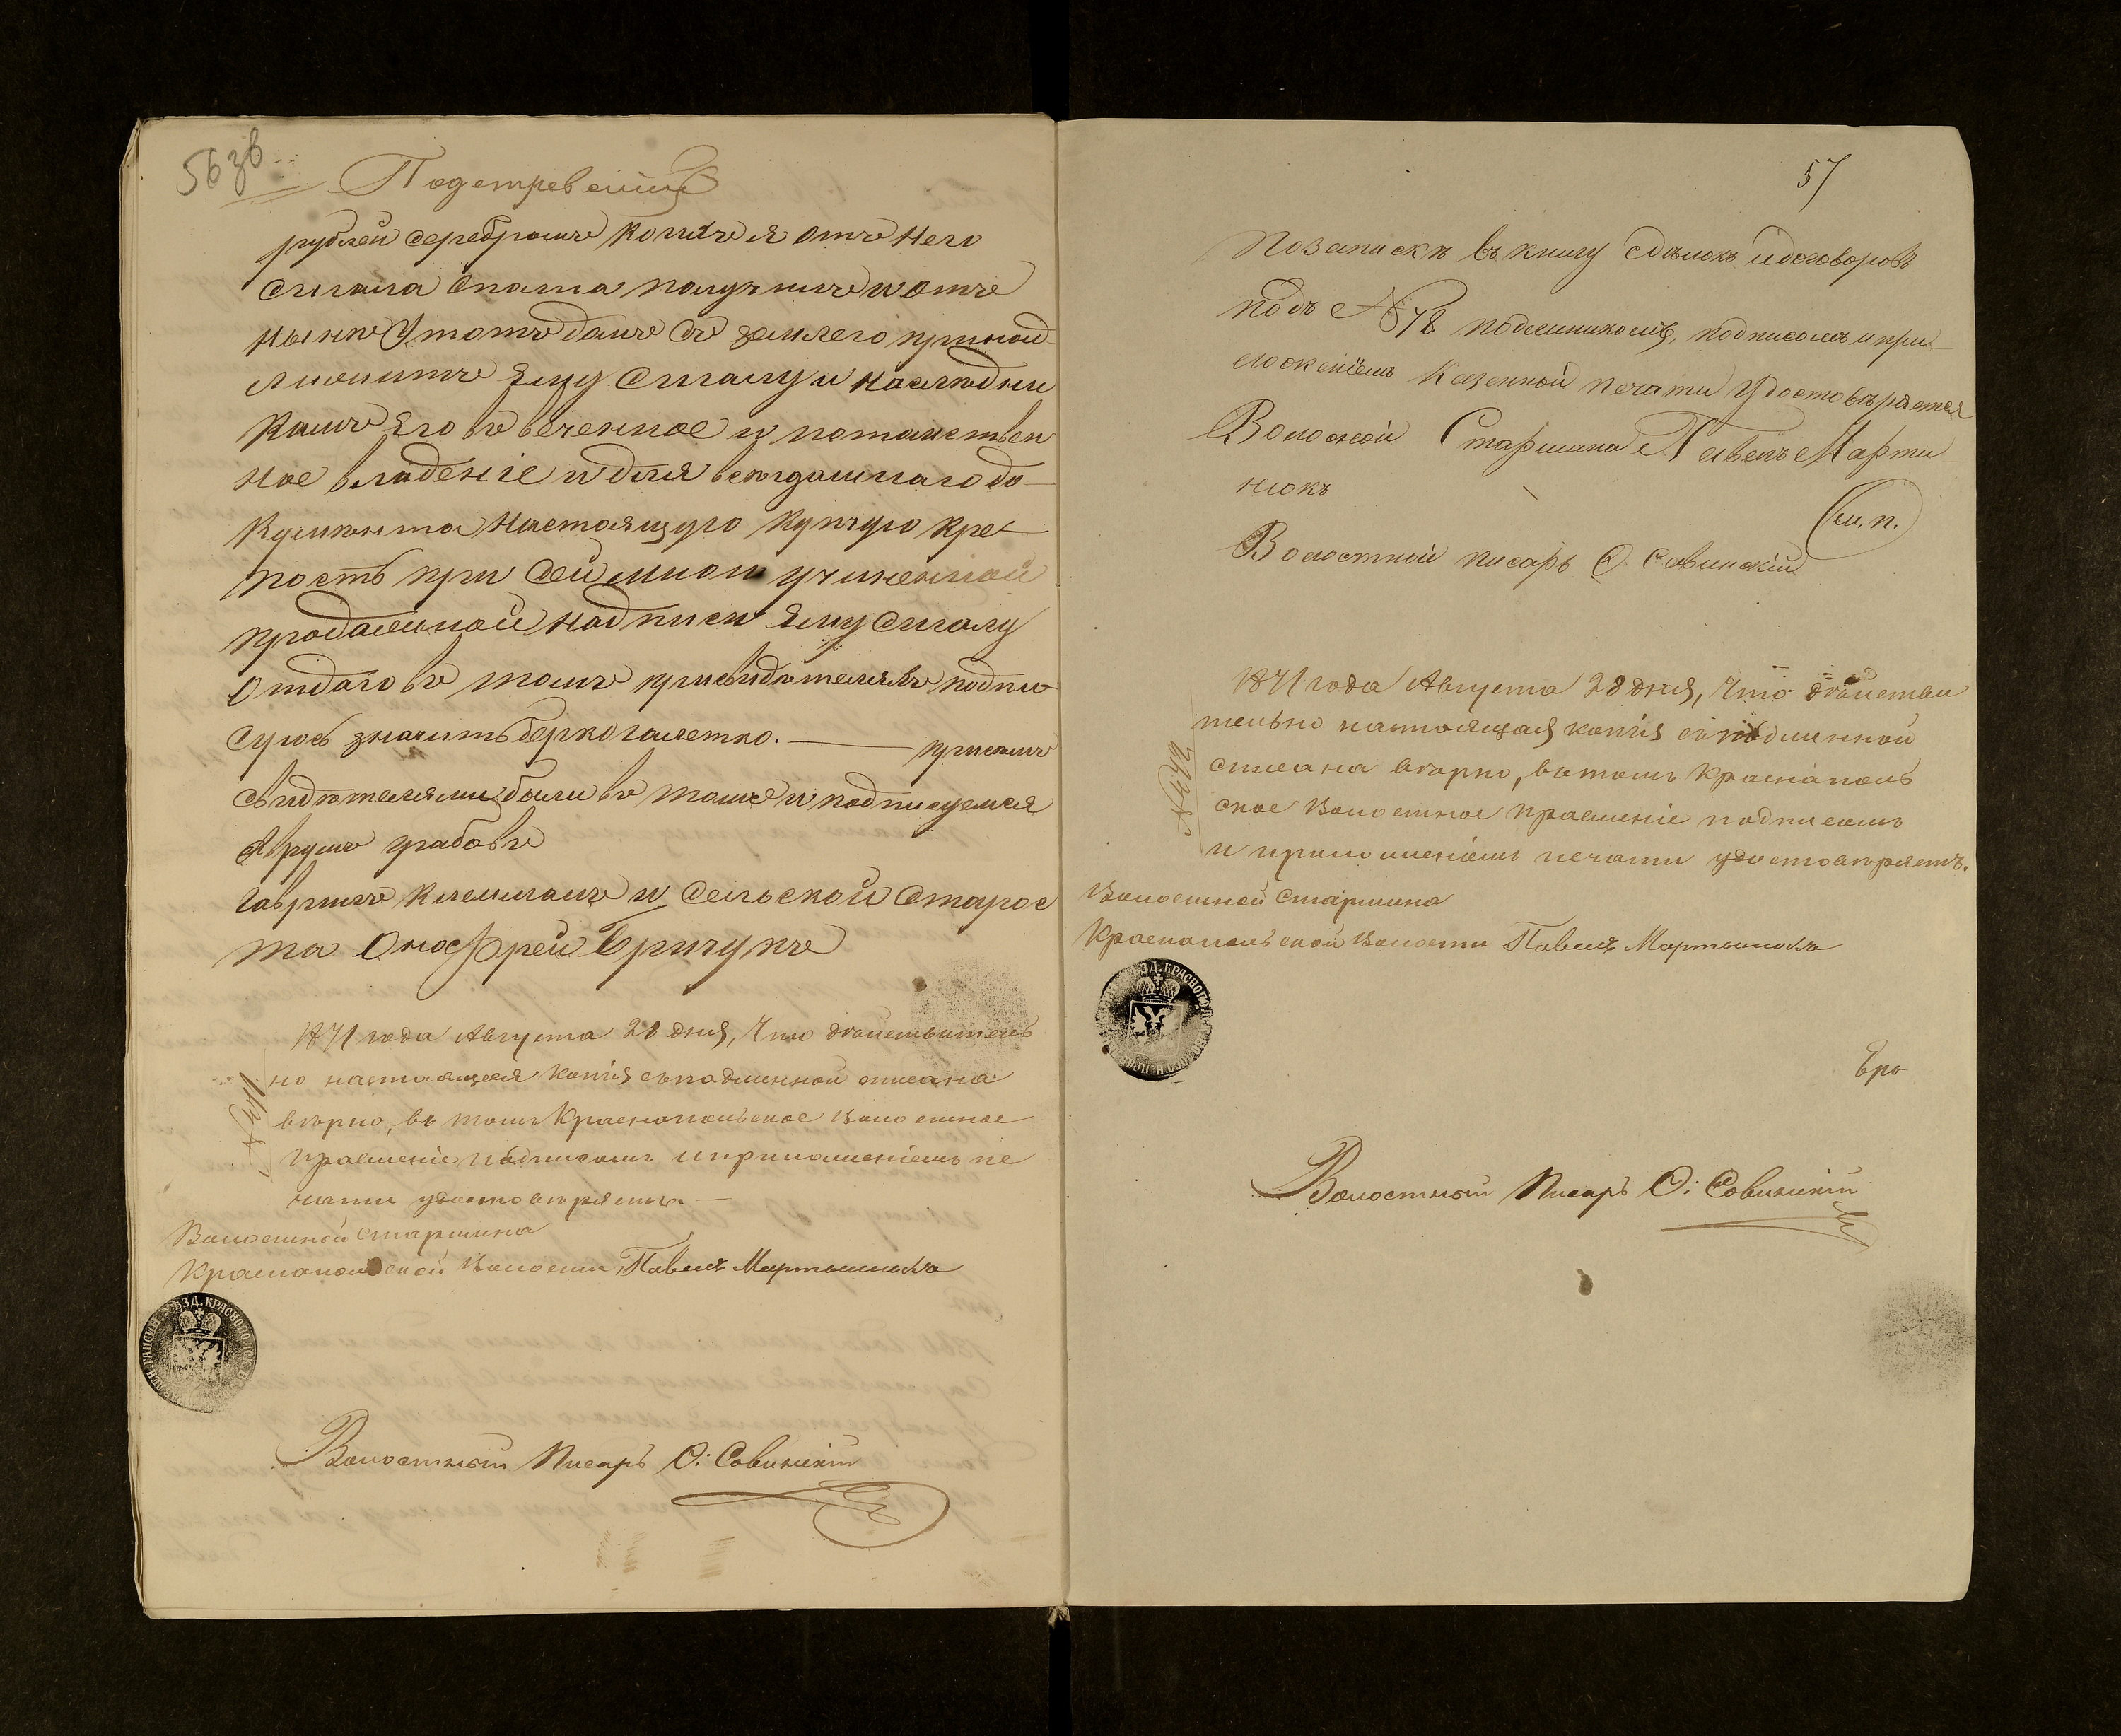 56 зв
рублей серебромъ коихъ я отъ Него
сполна получилъ и отъ
нынѣ
ему и наслѣдни
камъ Его въ веченное и потомствен
ное владеніе и для всегдашнаго до
кумента Настоящую купчую кре
пость при сей мною учиненной
продажной надписи Ему
Отдаю въ томъ при свидѣтеляхъ подпи
суюсь значитъ Берко —— при семъ
свидѣтелями были въ томъ и подписуемся
Аврумъ
и Сельской Старос
та Онофрей
1871 года Августа 28 дня, Что дѣйствитель
но настоящая копія съ подлинной списана
вѣрно, въ томъ Краснопольское Волостное
правленіе подписомъ и приложеніемъ пе
чати удостовѣряетъ. —
Волостной старшина
Краснопольской Волости Павелъ Мартынюкъ
УѢЗД. КРАСНОПОЛЬ
Волостный Писарь О: Савинскій
57
По записке въ книгу сдѣлокъ и договоровъ
подъ № 78 подписомъ и при
ложеніемъ Казенной печати Удостовѣряется
Волосной Старшина Павелъ Марти
нюкъ
(м. п.)
Волостной писарь О Савинскій
1871 года Августа 28 дня, Что дѣйстви
тельно настоящая копія съ подлинной
списана вѣрно, въ томъ Краснополь
ское Волостное правленіе подписомъ
и приложеніемъ печати удостовѣряетъ.
Волостной старшина
Краснопольской Волости Павелъ Мартынюкъ
УѢЗД. КРАСНОПОЛЬ
Волостный Писарь О: Савинскій